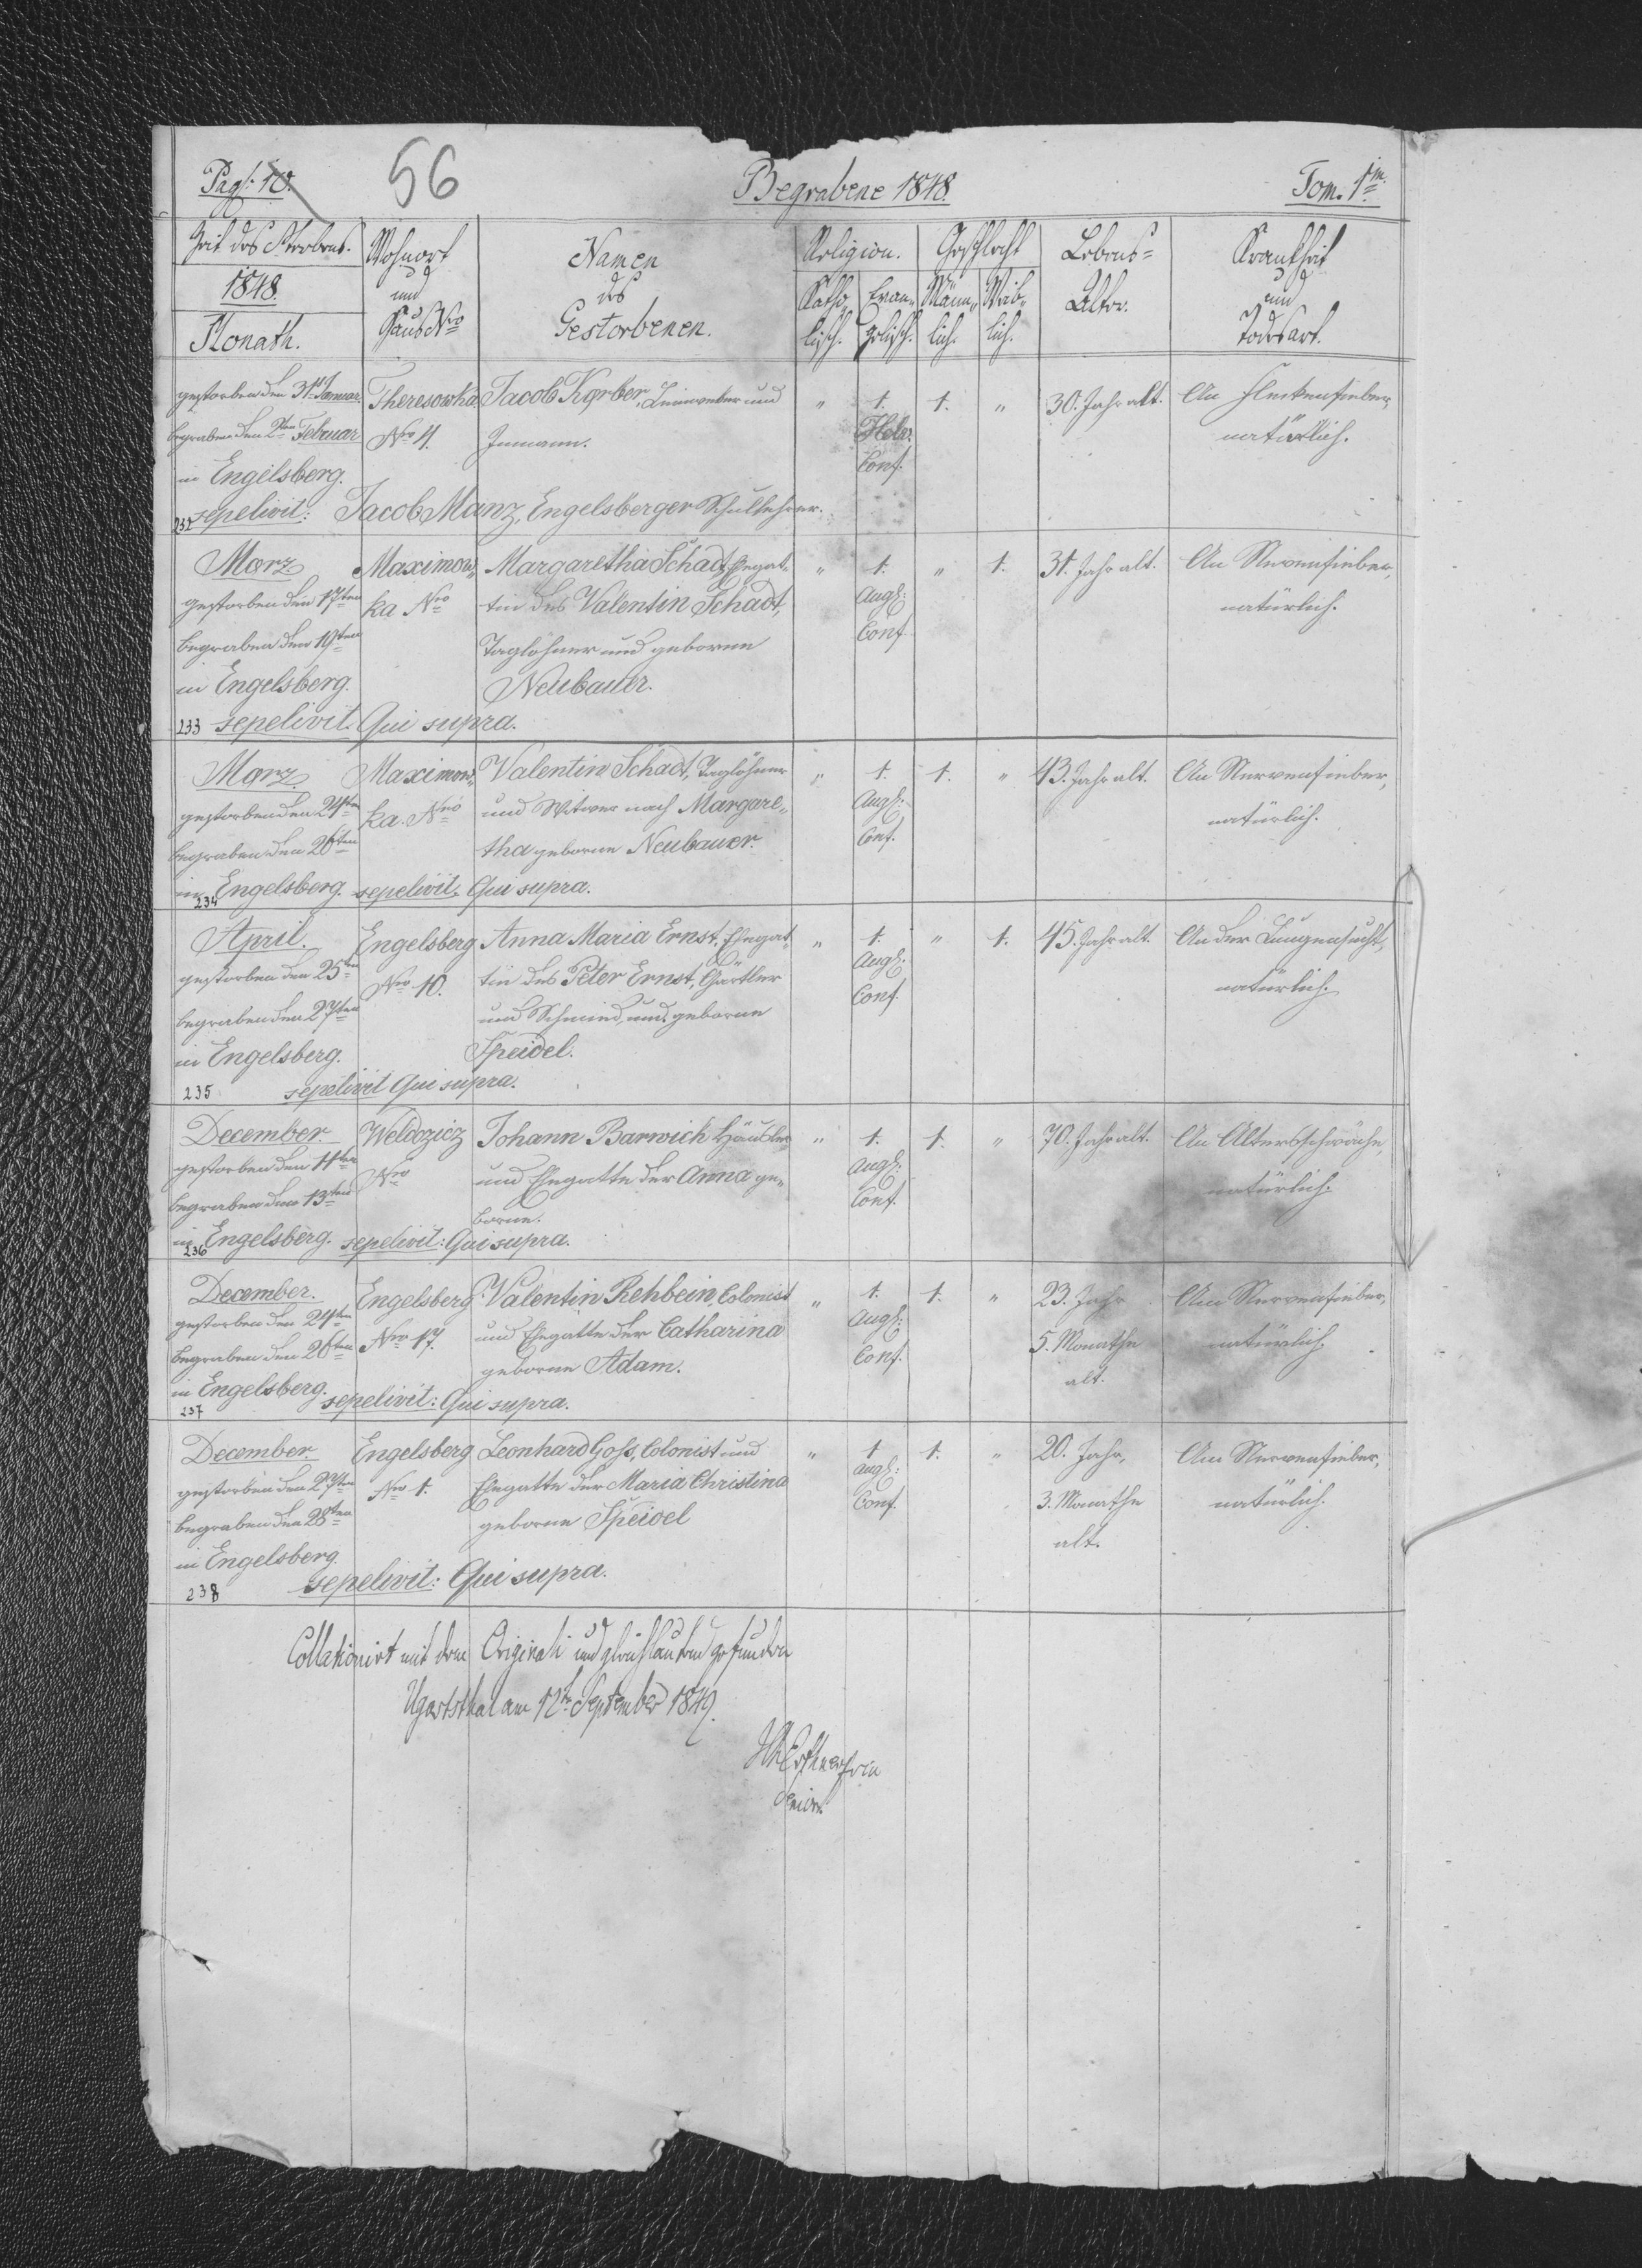 Pag: 10. 56 Begrabene 1848. Tom. 1m.
Zeit des Sterbens. Wohnort Namen Religion. Geschlecht Lebens= Krankheit
1848. und des Katho Evan„ Männ„ Weib„ Alter. und
Monath. Haus Nro Gestorbenen. lisch. gelisch. lich. lich. Todesart.
gestorben den 31t Januar. Theresowka Jacob Kørber, Leinweber und „ 1. 1. „ 30. Jahr alt. An Fleckenfieber,
begraben den 2ten Februar Nro 4. Inmann. Helv. natürlich.
in Engelsberg. Conf.
232 sepelivit: Jacob Manz, Engelsberger Schullehrer.
Mærz Maximow„ Margaretha Schadt, Ehegat„ „ 1. „ 1. 31. Jahr alt. An Nervenfieber,
gestorben den 17ten ka Nro tin des Valentin Schadt, Augs: natürlich.
begraben den 19ten Taglöhner und geborene Conf
in Engelsberg. Neubauer.
233 sepelivit. Qui supra.
Mærz Maximow„ Valentin Schadt, Taglöhner „ 1. 1. „ 43. Jahr alt. An Nervenfieber,
gestorben den 24ten ka. Nro und Witwer nach Margare„ Augs: natürlich.
begraben den 26ten tha geborne Neubauer. Conf.
in Engelsberg. sepelivit. Qui supra.
234
April. Engelsberg Anna Maria Ernst, Ehegat„ „ 1. „ 1. 45. Jahr alt. An der Lungensucht,
gestorben den 25ten Nro 10. tin des Peter Ernst, Gärtler Augs: natürlich.
begraben den 27ten und Schmied, und geborene Conf.
in Engelsberg. Speidel.
235 sepelivit Qui supra.
December Weldozicz Johann Barwich Häusler „ 1. 1. „ 70. Jahr alt. An Altersschwäche,
gestorben den 11ten Nro und Ehegatte der Anna ge„ Augs: natürlich.
begraben den 13ten borne. Conf.
in Engelsberg. sepelivit: Qui supra.
236
December. Engelsberg Valentin Rehbein, Colonist „ 1. 1. „ 23. Jahr An Nervenfieber,
gestorben den 24ten Nro 17. und Ehegatte der Catharina Augs: 5. Monathe natürlich.
begraben den 26ten geborne Adam. Conf. alt.
in Engelsberg. sepelivit: Qui supra.
237
December. Engelsberg Leonhard Goß, Colonist und „ 1 1. „ 20. Jahr, An Nervenfieber,
gestorben den 27ten Nro 1. Ehegatte der Maria Christina Augs: 3. Monathe natürlich.
begraben den 28ten geborne Speidel Conf. alt.
in Engelsberg.
238 sepelivit: Qui supra.
Collationirt mit dem Originali und gleichlautend gefunden
Ugartsthal am 12ten September 1849.